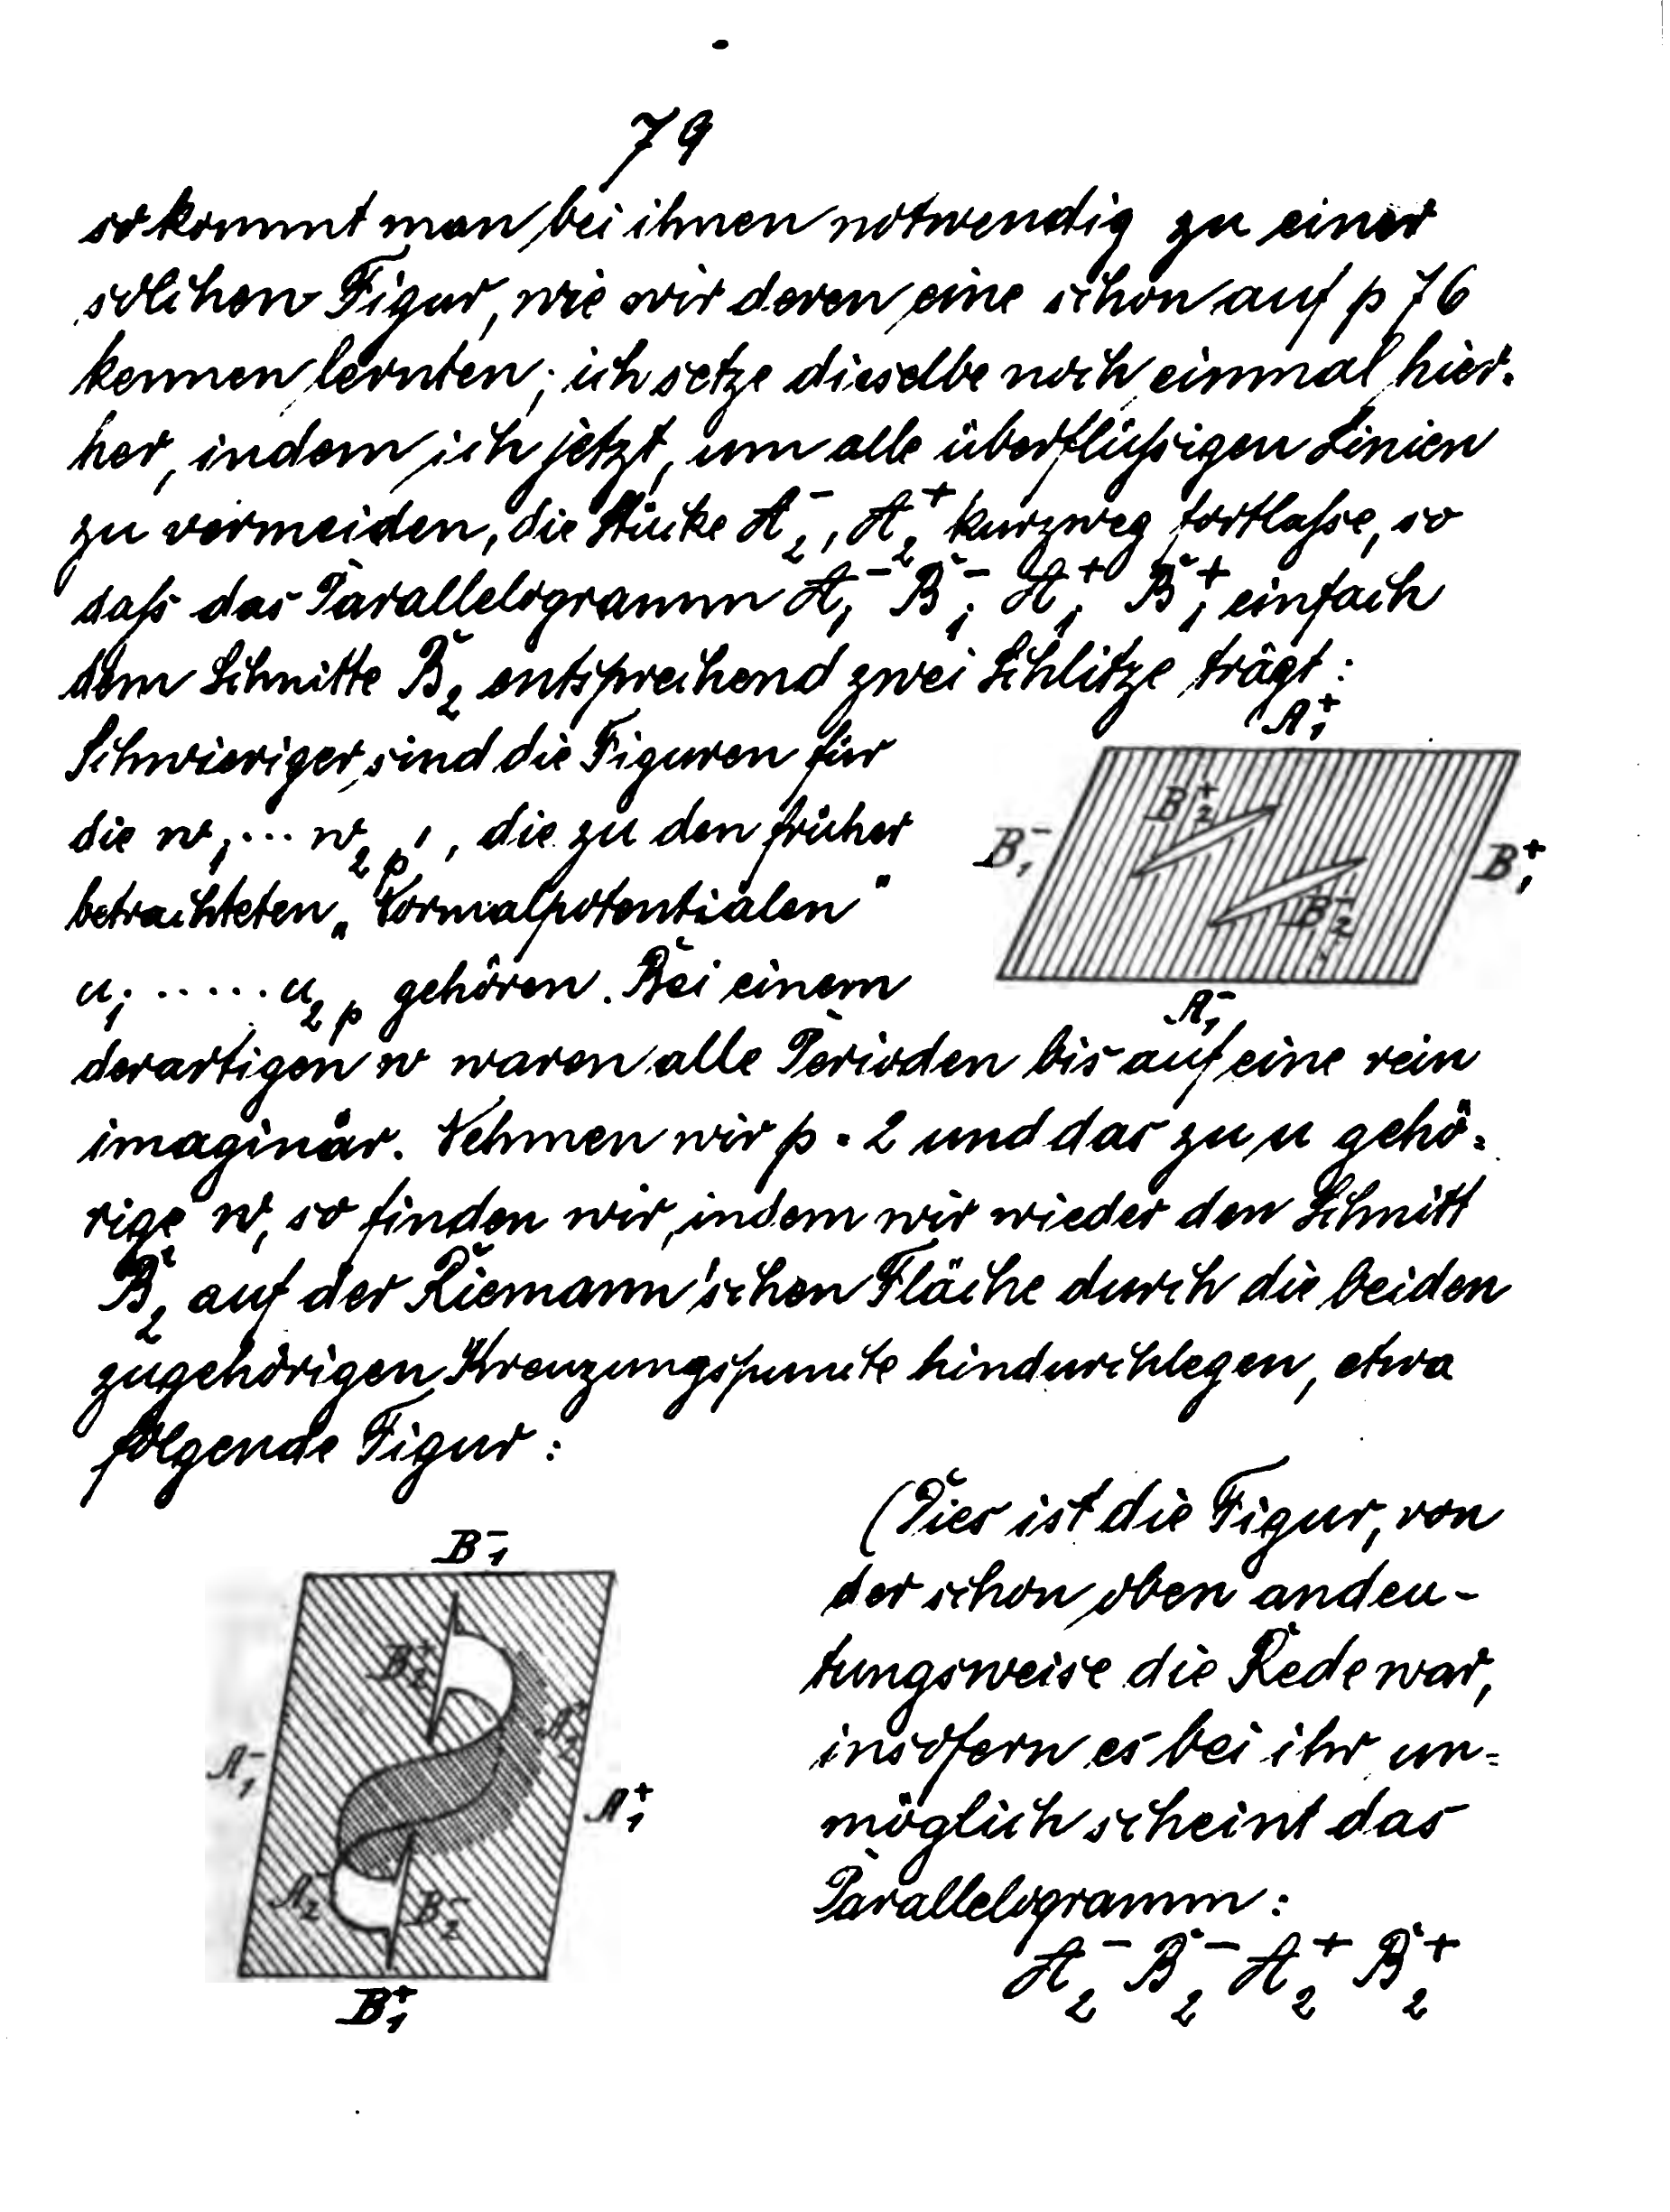 79
so kommt man bei ihnen notwendig zu einer
solchen Figur, wie wir deren eine schon auf p 76
kennen lernten; ich setze dieselbe noch einmal hier-
her, indem ich jetzt, um alle überflüßigen Linien
zu vermeiden, die Stücke A₂⁻, A₂⁺ kurzweg fortlaße, so
daß das Parallelogramm A₁⁻ B₁⁻ A₁⁺ B₁⁺ einfach
dem Schnitte B₂ entsprechend zwei Schlitze trägt:
Schwieriger sind die Figuren für
die w₁ ... w₂ₚ, die zu den früher
betrachteten „Normalpotentialen"
u₁ ..... u₂ₚ gehören. Bei einem
A₁⁺
B₁⁻
B₂⁺
B₂⁻
B₁⁺
A₁⁻
derartigen w waren alle Perioden bis auf eine rein
imaginär. Nehmen wir p = 2 und das zu u gehö-
rige w, so finden wir, indem wir wieder den Schnitt
B₂ auf der Riemann'schen Fläche durch die beiden
zugehörigen Kreuzungspuncte hindurchlegen, etwa
folgende Figur:
B₁⁻
B₂⁺
A₂⁺
A₁⁻
A₁⁺
A₂⁻
B₂⁻
B₁⁺
(Dies ist die Figur, von
der schon oben andeu-
tungsweise die Rede war,
insofern es bei ihr un-
möglich scheint das
Parallelogramm:
A₂⁻ B₂⁻ A₂⁺ B₂⁺